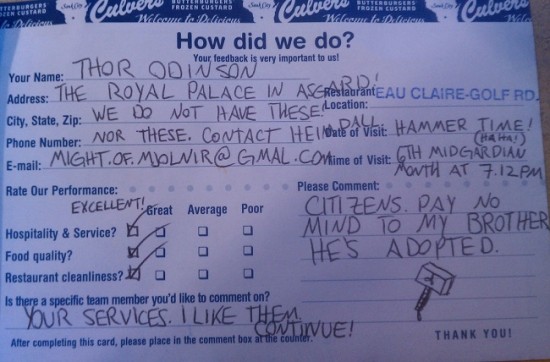 Culver's BUTTERBURGERS FROZEN CUSTARD Culver's BUTTERBURGERS FROZEN CUSTARD Culver's
Welcome to Delicious Welcome to Delicious
How did we do?
Your feedback is very important to us!
Your Name: THOR ODINSON
Address: THE ROYAL PALACE IN ASGARD!
Restaurant Location: EAU CLAIRE-GOLF RD.
City, State, Zip: WE DO NOT HAVE THESE!
Phone Number: NOR THESE. CONTACT HEIMDALL.
Date of Visit: HAMMER TIME! (HAHA!)
E-mail: MIGHT.OF.MJOLNIR@GMAL.COM
Time of Visit: 6TH MIDGARDIAN MONTH AT 7.12PM
Rate Our Performance:
EXCELLENT!
Great Average Poor
Hospitality & Service?
Food quality?
Restaurant cleanliness?
Please Comment:
CITIZENS. PAY NO
MIND TO MY BROTHER
HE'S ADOPTED.
Is there a specific team member you'd like to comment on?
YOUR SERVICES. I LIKE THEM.
CONTINUE!
After completing this card, please place in the comment box at the counter.
THANK YOU!